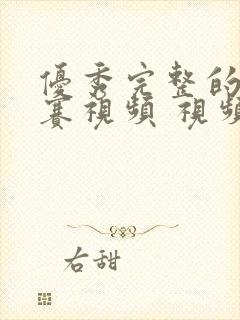 優秀完整的
賽視頻 視頻
右甜